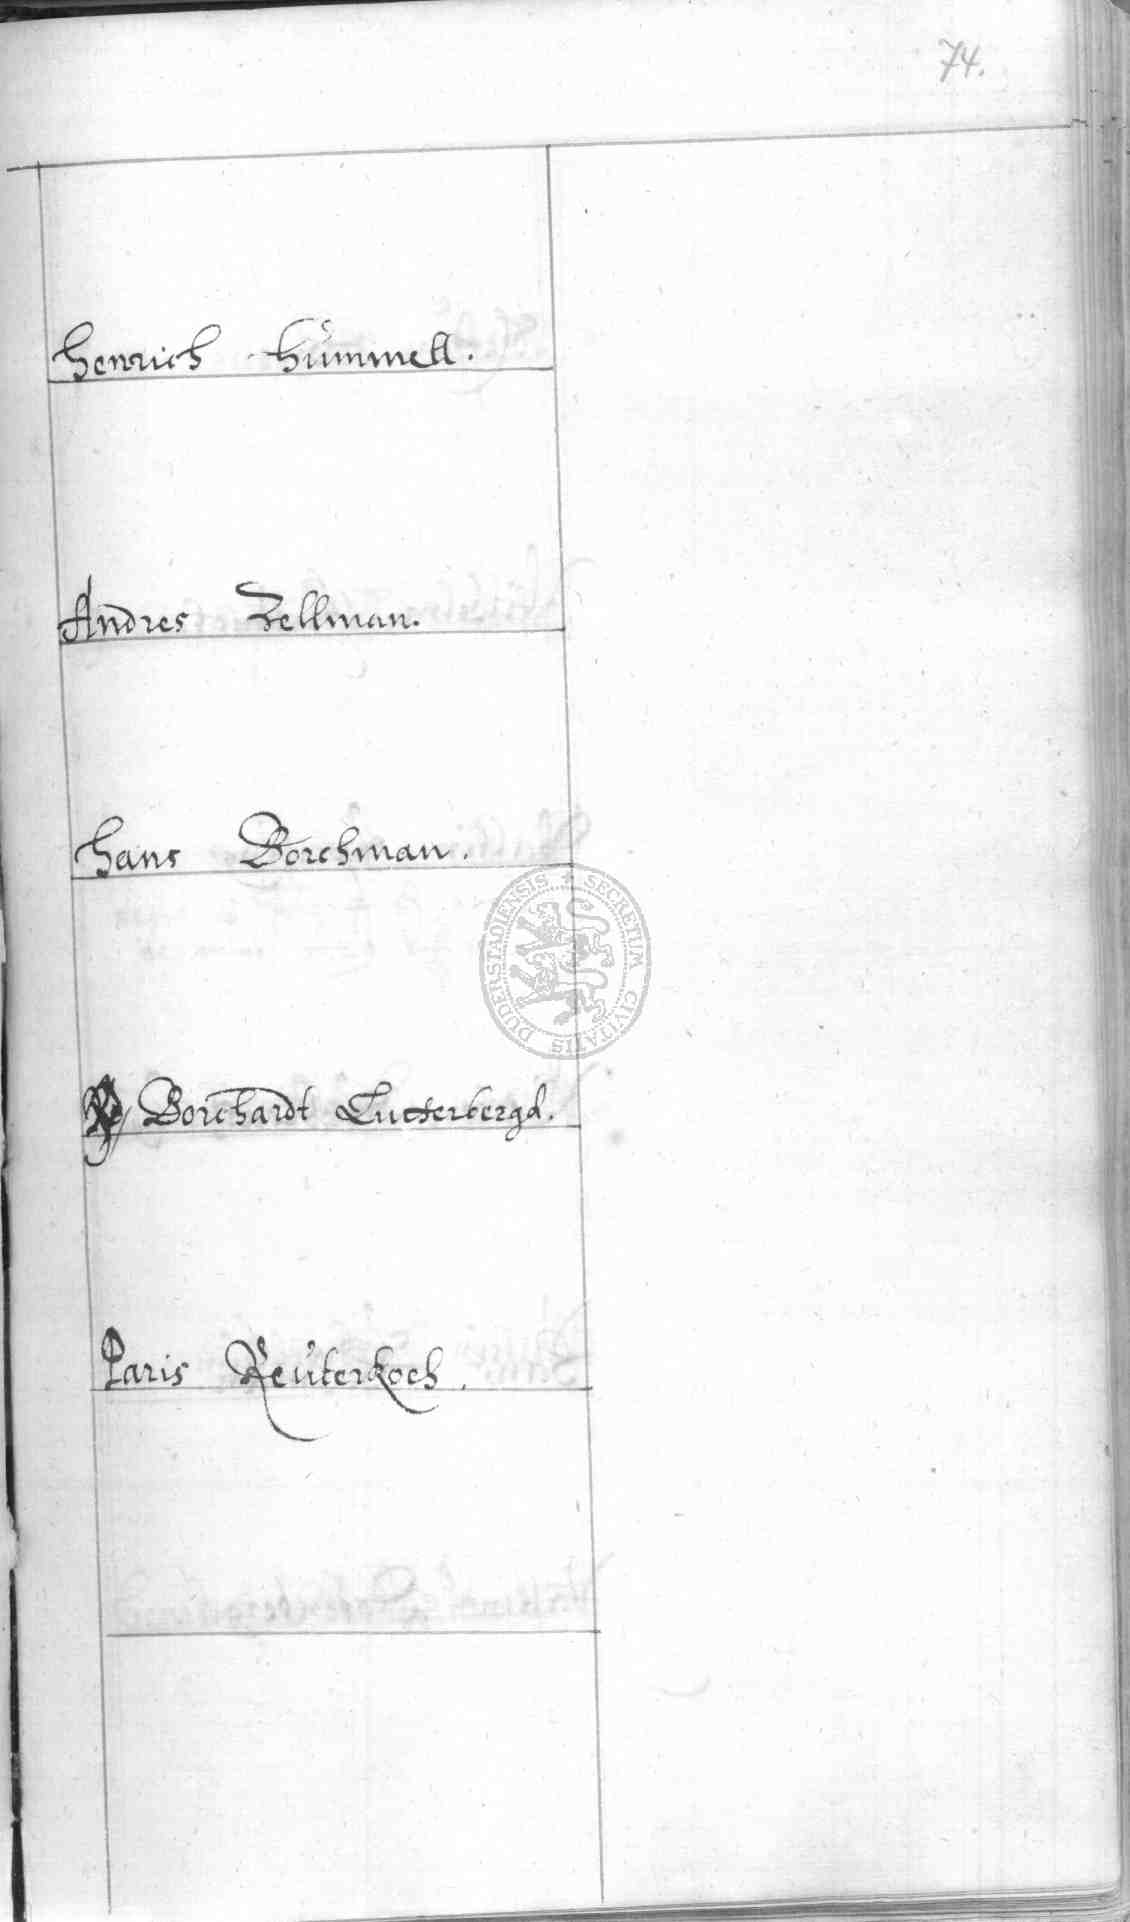 74.
Henrich Hümmell.
Andres Zellman.
Hans Borchman.
Borchardt Lutterbergd.
Paris Reüterkoch.
DUDERSTADIENSIS + SECRETUM CIVITATIS